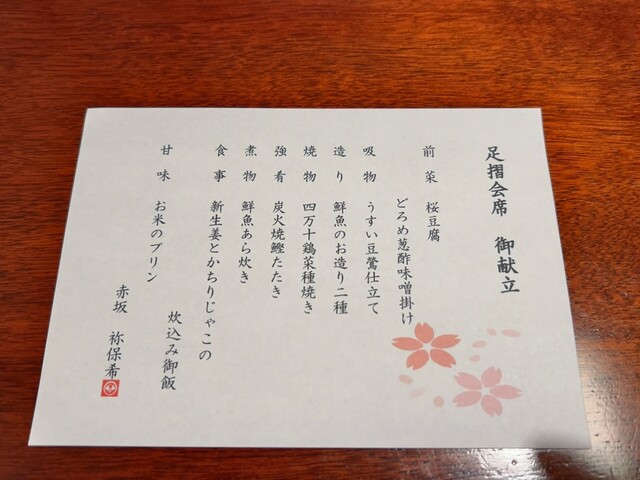 足摺会席　御献立
前菜　桜豆腐
どろめ葱酢味噌掛け
吸物　うすい豆鶯仕立て
造り　鮮魚のお造り二種
焼物　四万十鶏菜種焼き
強肴　炭火焼鰹たたき
煮物　鮮魚あら炊き
食事　新生姜とかちりじゃこの
炊込み御飯
甘味　お米のプリン
赤坂　祢保希